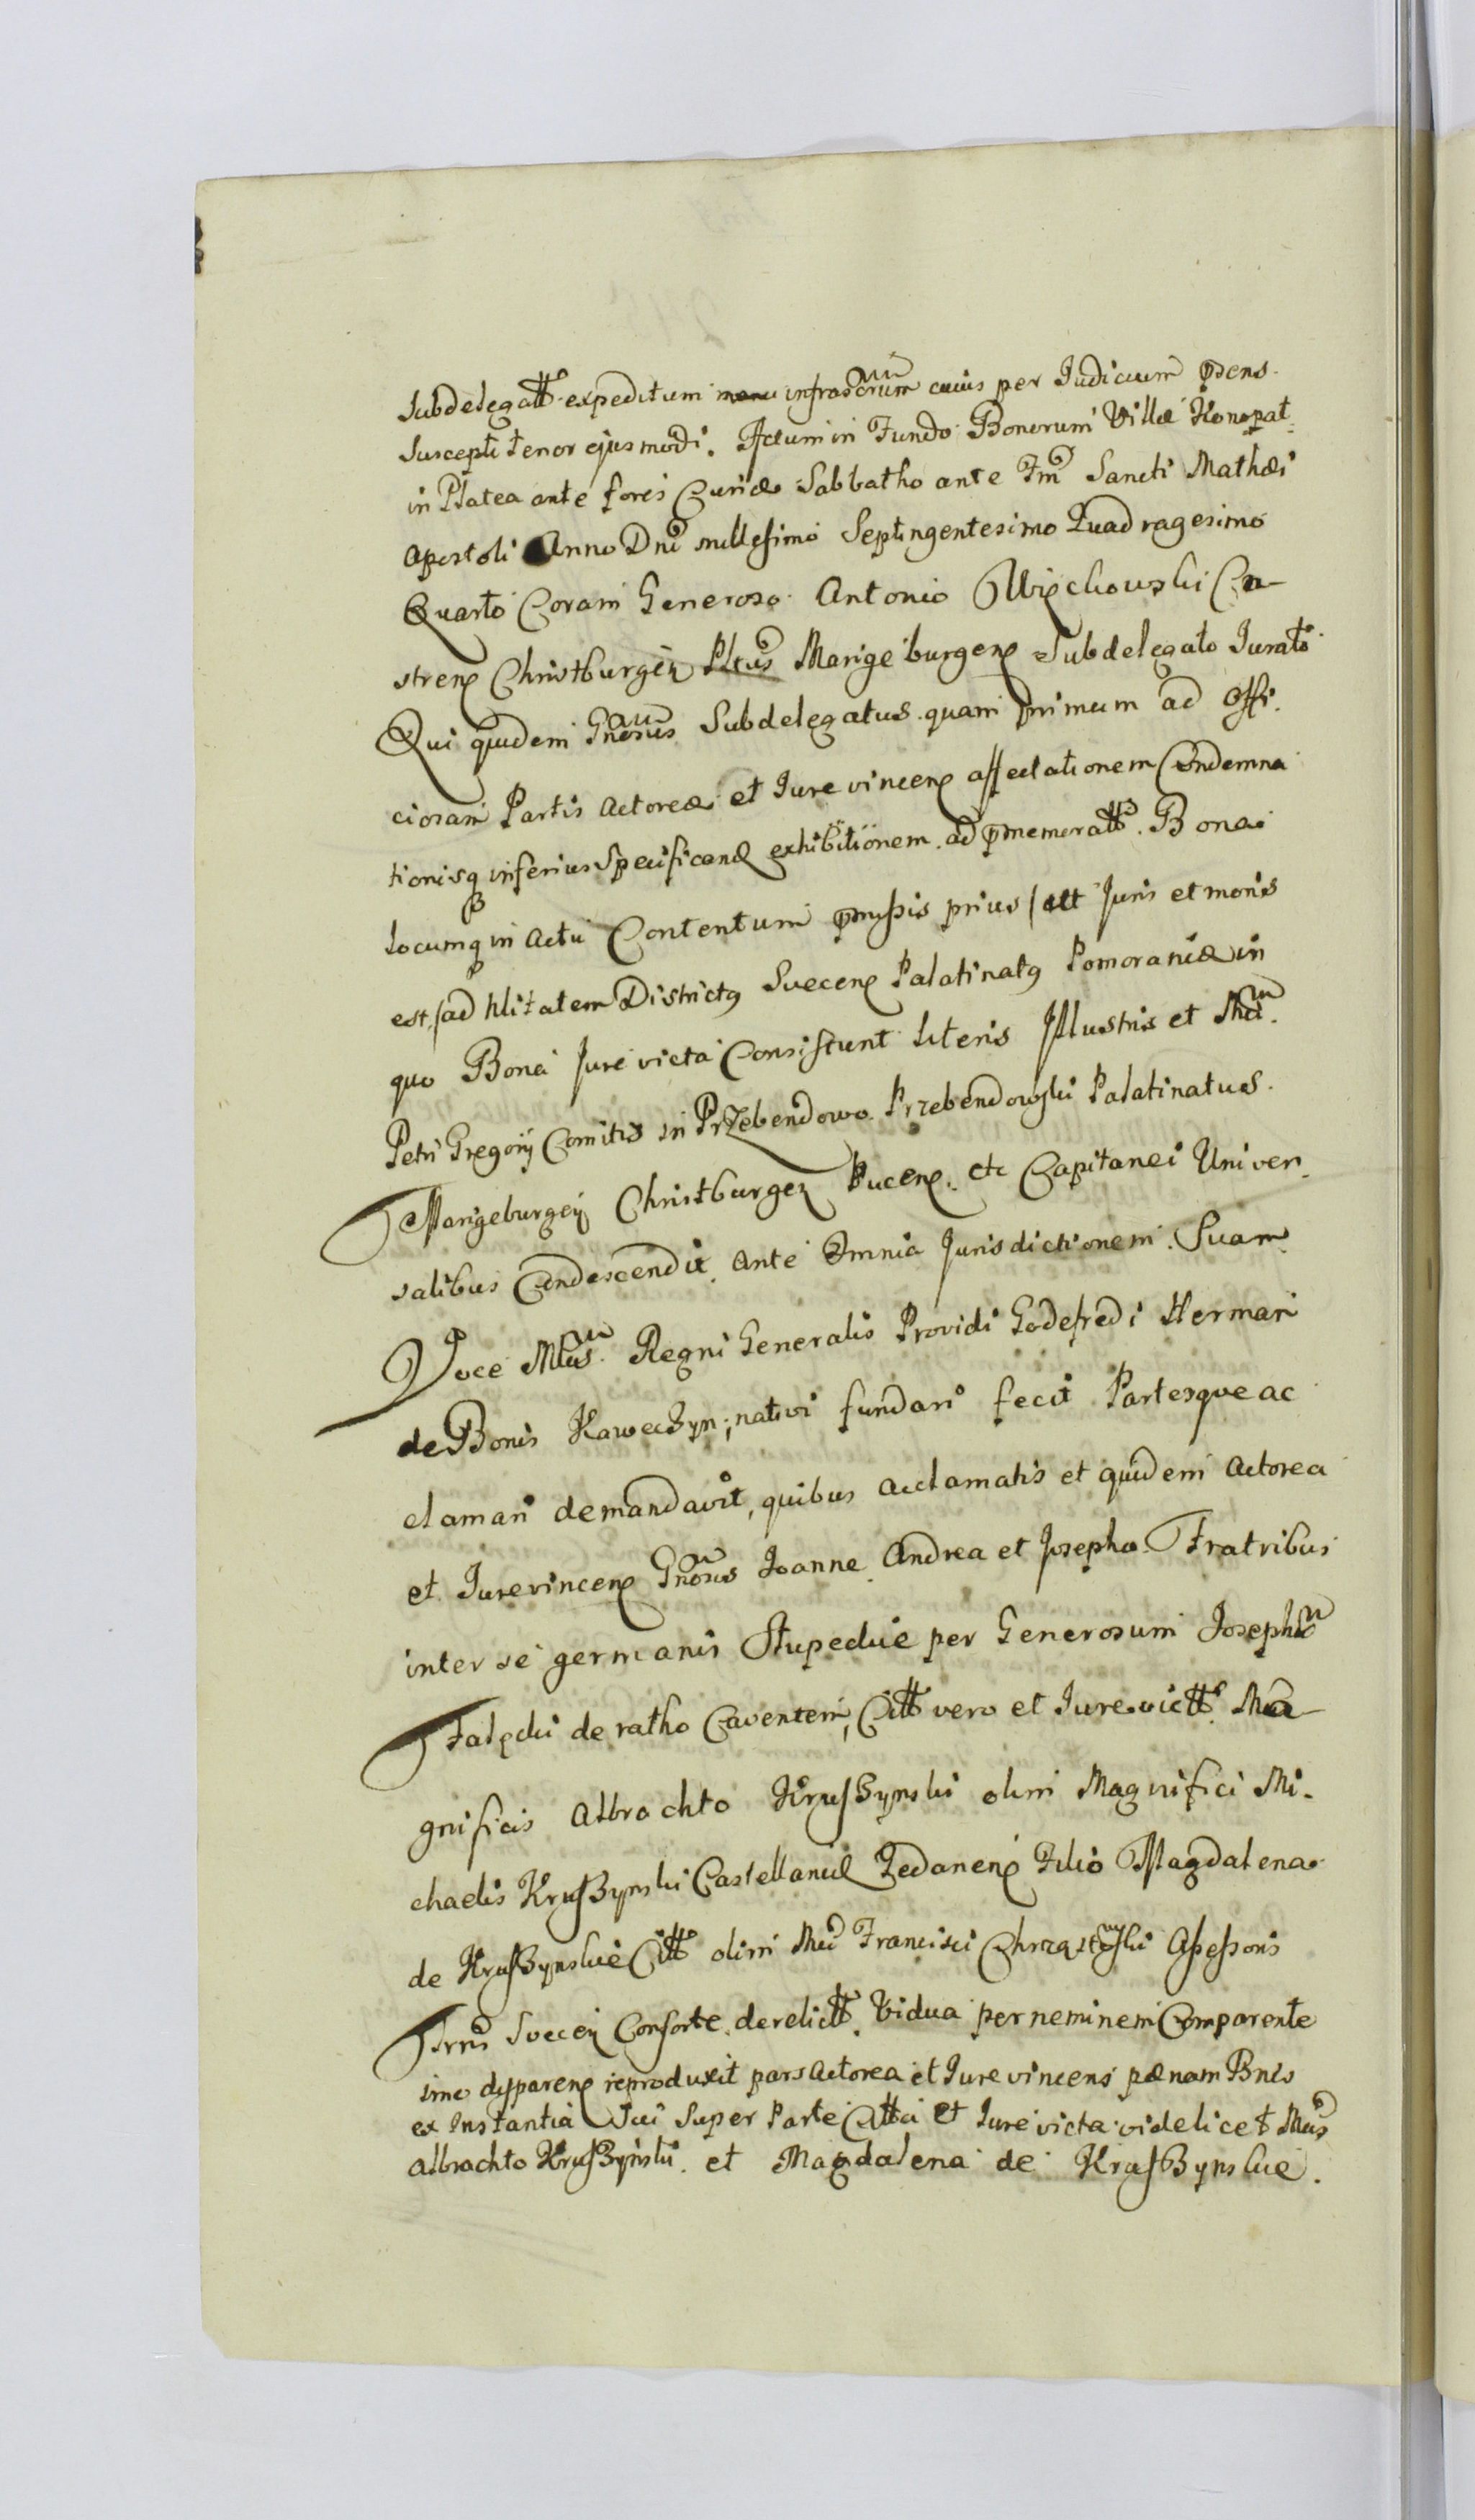 Subdelegatt. expeditum manu infrascrūm cuius per Judicium prens.
Suscepti tenor ejusmodi. Actum in Fundo Bonorum Villæ Konopat
in Platea ante fores Curiæ Sabbatho ante Fm Sancti Mathæi
Apostoli Anno Dni millesimo Septingentesimo Quadragesimo
Quarto Coram Generoso Antonio Więckowski Ca-
strens Christburgen Pltus Marigeburgens Subdelegato Jurato
Qui quidem Gnosus Subdelegatus quam primum ad Offi.
ciosam Partis Actoreæ et Jure vincens affectationem Condemna
tionisq inferius Specificand exhibitionem ad prmemoratt. Bona
Locumq in Actu Contentum prmissis prius / utt Juris et moris
est / ad hlitatem Districtg Svecens Palatinatg Pomoraniæ in
quo Bona Jure victa Consistunt Literis Illustris et Mci.
Petri Gregorij Comitis in Przebendowo Przebendowski Palatinatus
Marigeburgen Christburgen Pucens. etc Capitanei Univer-
salibus Condescendit. Ante Omnia Jurisdictionem Suam
Voce Mltus. Regni Generalis Providi Godefredi Herman
de Bonis Kaweczyn, nativi fundari fecit Partesque ac
clamari demandavit, quibus acclamatis et quidem Actorea
et Jurevincens Gnosis Joanne Andrea et Josepho Fratribus
inter se germanis Stupeckie per Generosum Josephum
Falęcki de ratho Caventem, Citt vero et Jurevictt. Ma-
gnificis Albrachto Kruszynski olim Magnifici Mi-
chaelis Kruszynski Castellanid Gedanens Filio Magdalena
de Kruszynskie Citt olim Mci Francisci Chrząstowski Assessoris
Trrus Svecen Consorte derelictt. Vidua per neminem Comparente
imo disparens reproduxit pars Actorea et Jure vincens pænam Bnis
ex Instantia Sui Super Parte Citta et Jure victa videlicet Mcis
Albrachto Kruszynski et Magdalena de Kruszynskie.